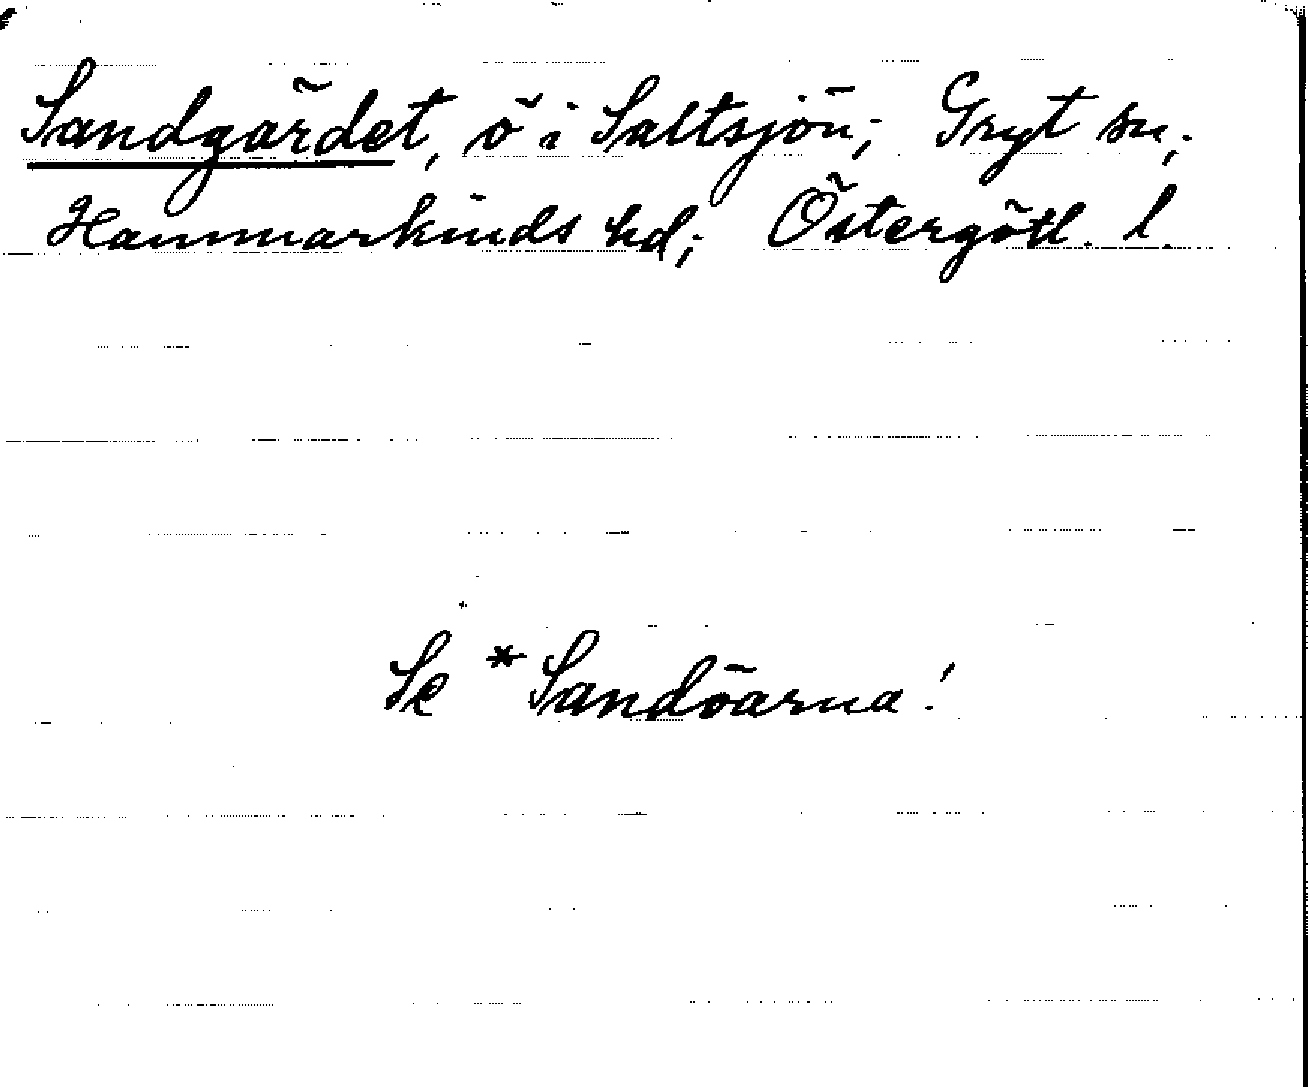 Sandgärdet, ö i Saltsjön; Gryt sn;
Hammarkinds hd; Östergötl. l.
Se *Sandöarna!